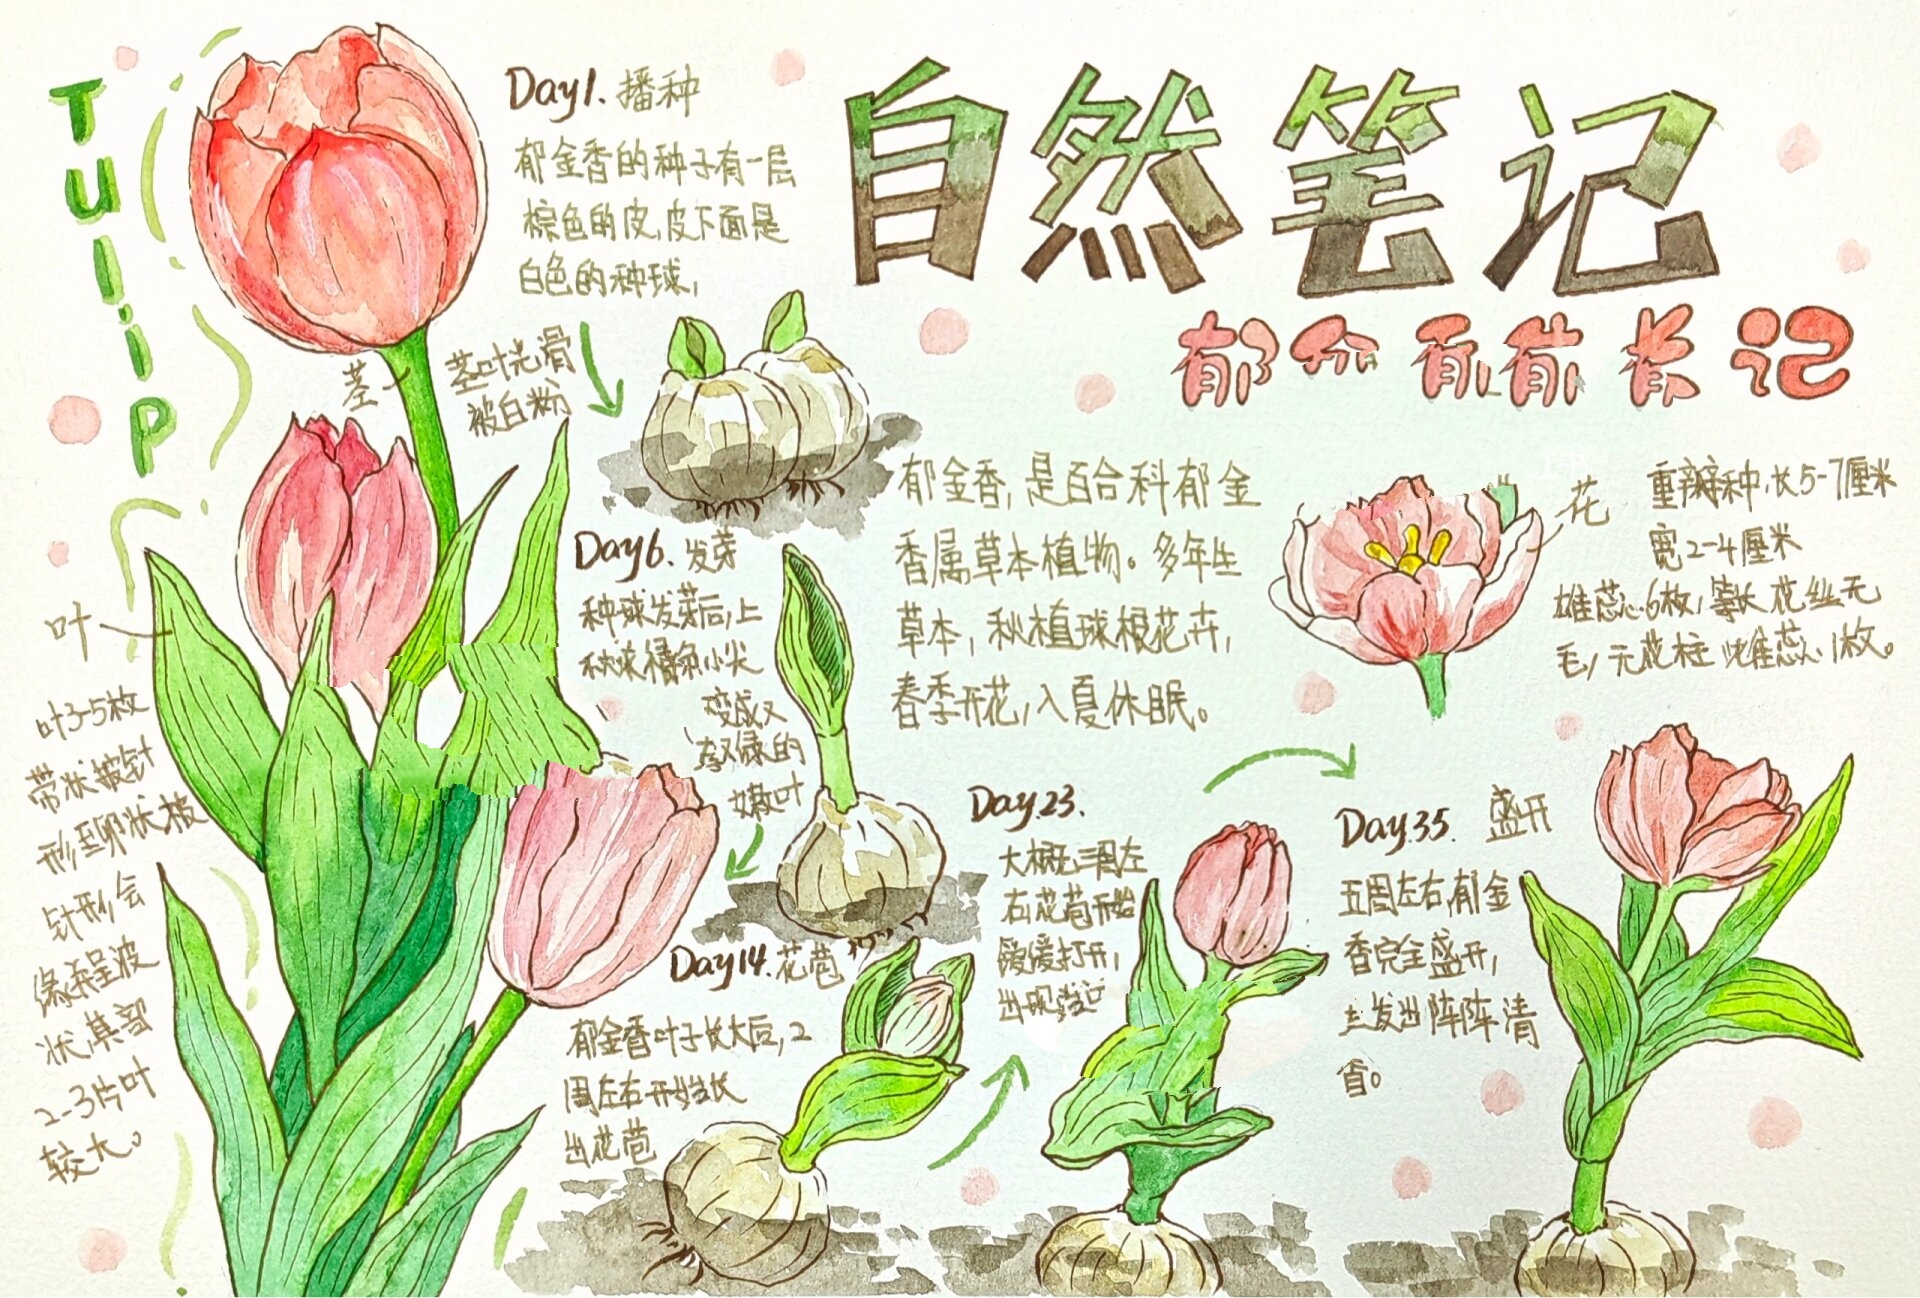 Tulip
自然笔记
郁 长记
Day1. 播种
郁金香的种子有一层
棕色的皮,皮下面是
白色的种球,
茎
茎叶光滑
被白粉
郁金香,是百合科郁金
香属草本植物。多年生
草本,秋植球根花卉,
春季开花,入夏休眠。
花
重瓣种,长5-7厘米
宽2-4厘米
雄蕊6枚,等长花丝无
毛,无花柱 雌蕊1枚。
叶
叶3-5枚
带状披针
形至卵状披
针形,会
缘呈波
状,其
2-3片叶
较大。
Day6. 发芽
种球发芽后,上
小尖
变成又
绿的
嫩叶
Day14. 花苞
郁金香叶子长大后,2
周左右开始长
出花苞
Day.23.
大概三周左
右,花苞开始
打开,
出现
Day.35. 盛开
五周左右,郁金
香完全盛开,
发出阵阵清
香。